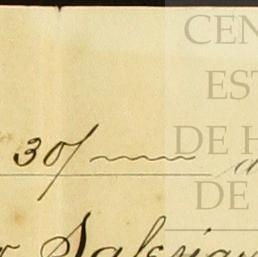 CEN
EST
30/
DE H
DE
Salesian